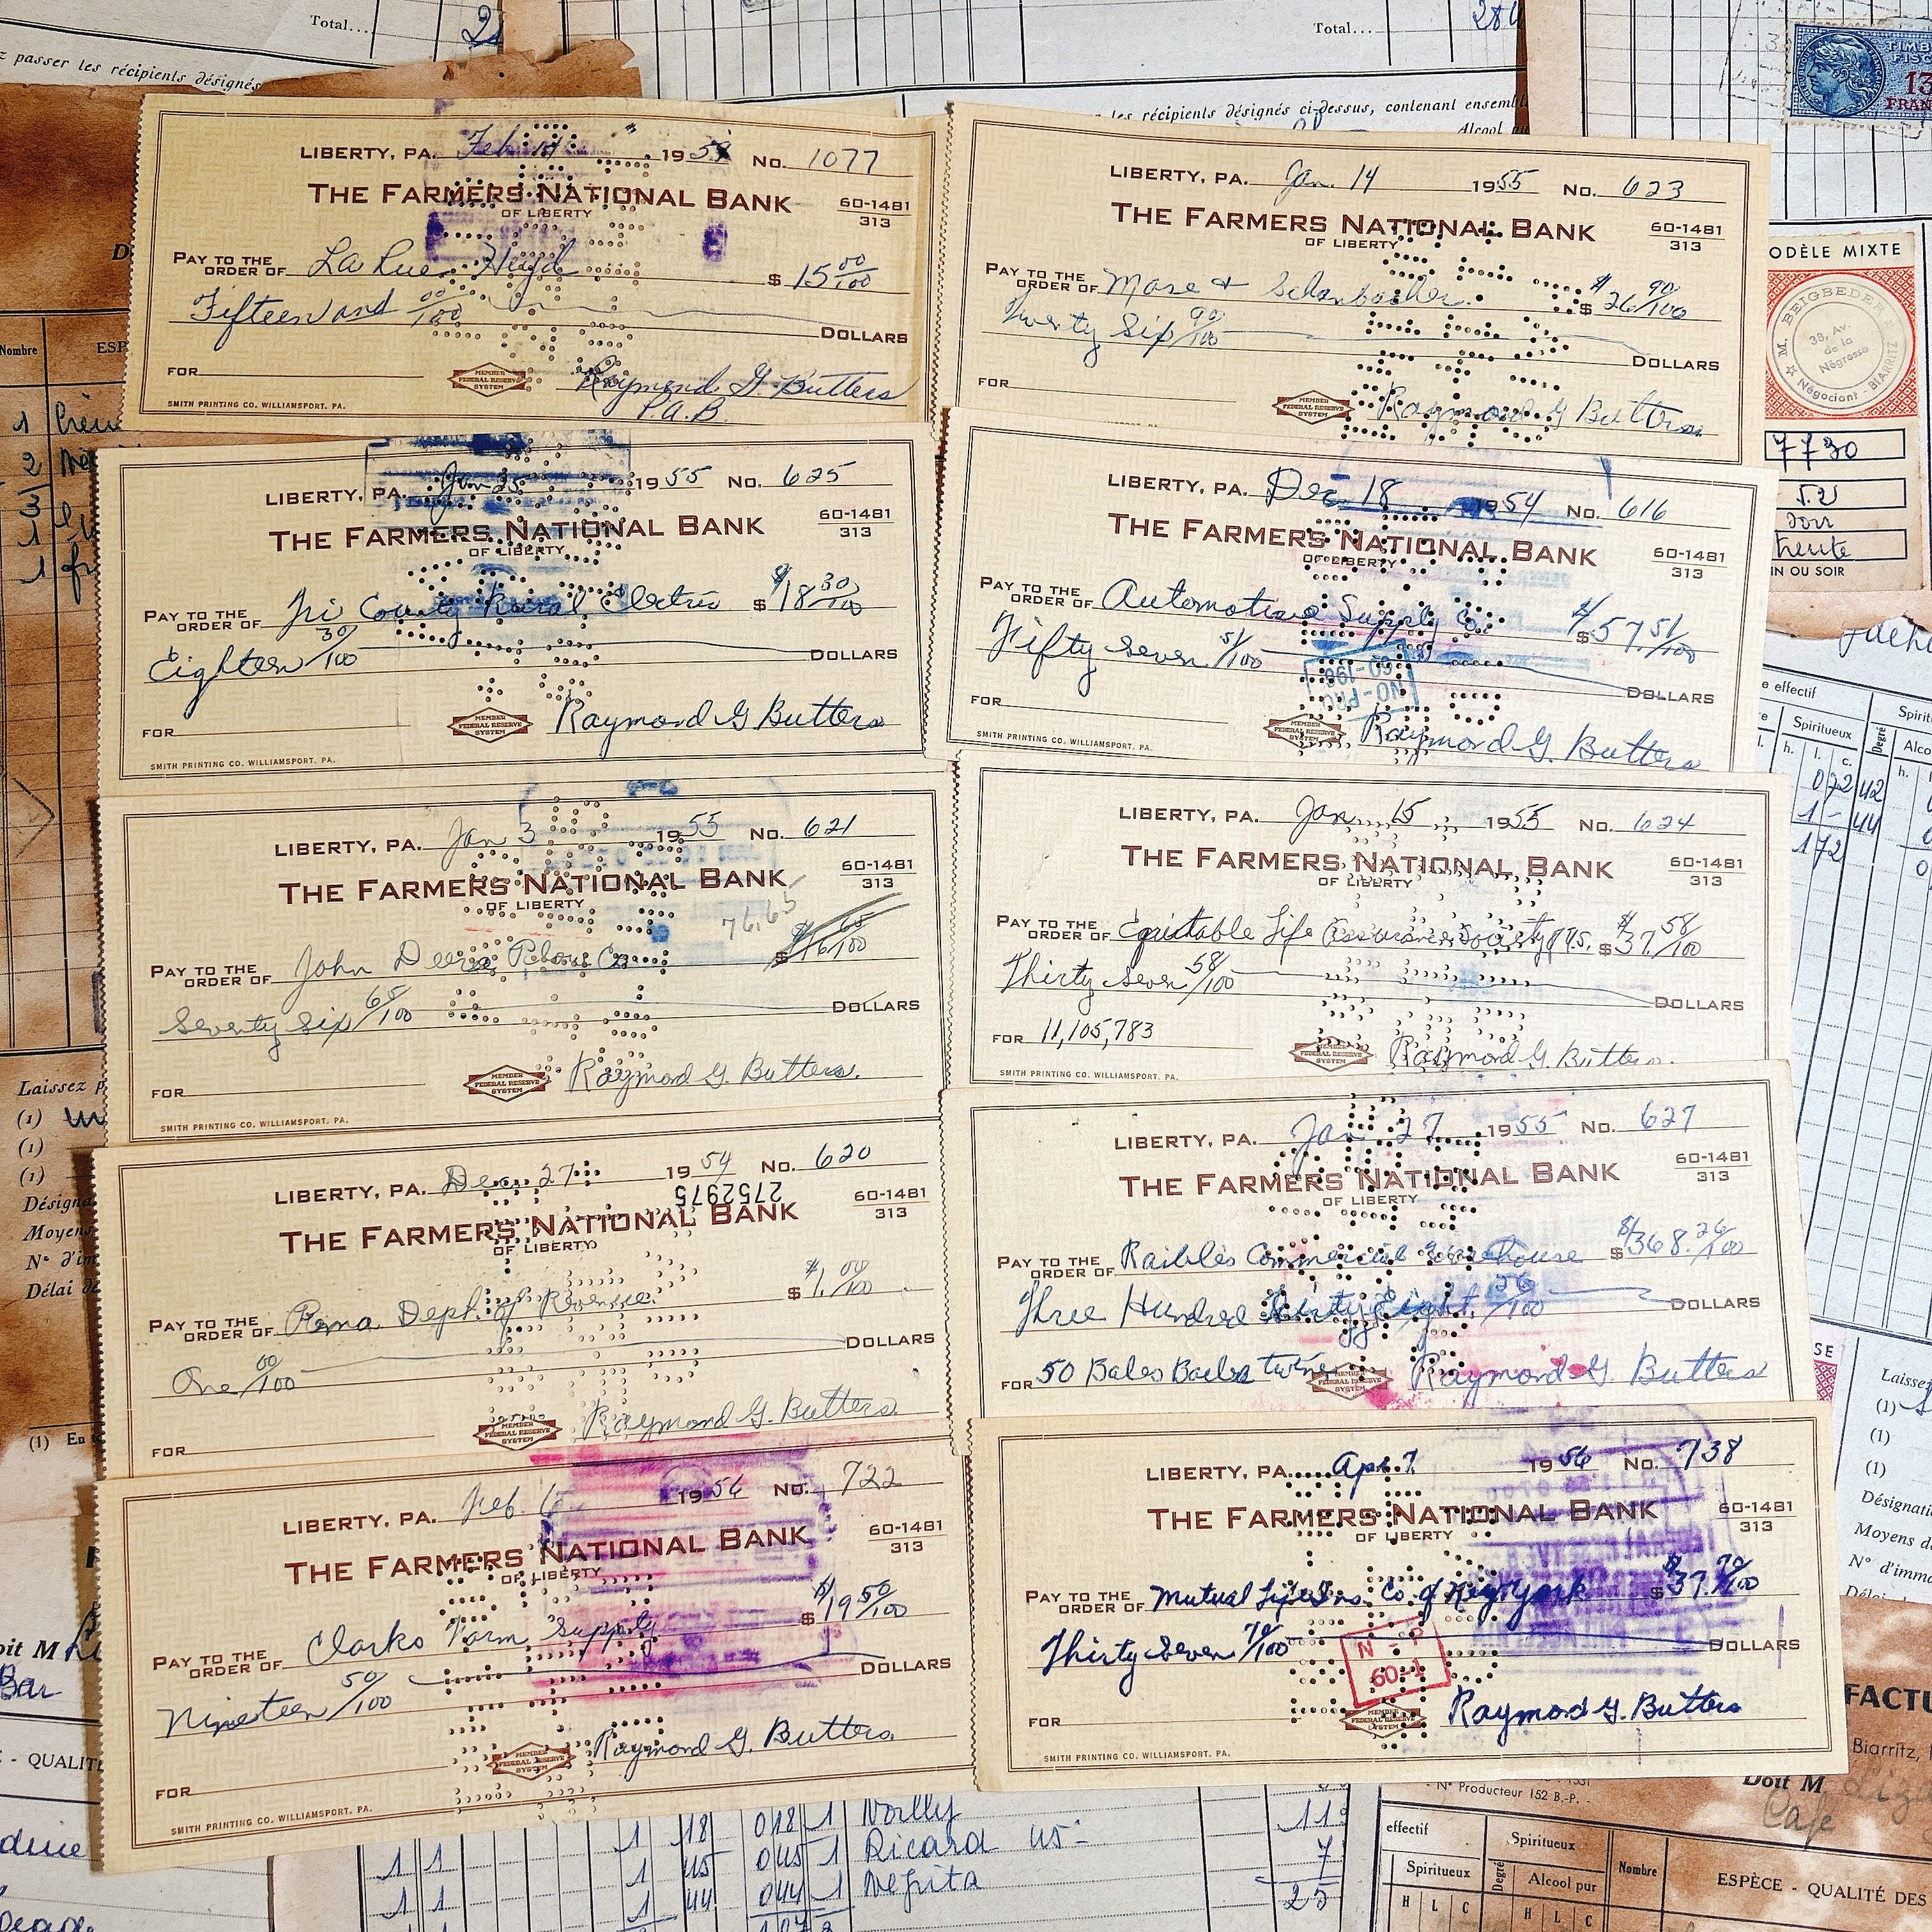 Total...
Total...
passer les récipients désignés
les récipients désignés ci-dessus, contenant ensemb
TIMB
FISC
13
FRAN
LIBERTY, PA. Feb 1959 No. 1077
THE FARMERS NATIONAL BANK
OF LIBERTY
60-1481
313
PAY TO THE
ORDER OF La Rue $ 15 00/100
Fifteen and 00/100 DOLLARS
FOR
MEMBER
FEDERAL RESERVE
SYSTEM
Raymond G. Butters
P.A.B.
SMITH PRINTING CO. WILLIAMSPORT, PA.
LIBERTY, PA. Jan. 14 1955 No. 623
THE FARMERS NATIONAL BANK
OF LIBERTY
60-1481
313
PAY TO THE
ORDER OF Mase & Schanbacher $ 26 90/100
Twenty Six 90/100 DOLLARS
FOR
MEMBER
FEDERAL RESERVE
SYSTEM
Raymond G Butters
LIBERTY, PA. Jan 25 1955 No. 625
THE FARMERS NATIONAL BANK
OF LIBERTY
60-1481
313
PAY TO THE
ORDER OF Tri County Rural Electric $ 18 30/100
Eighteen 30/100 DOLLARS
FOR
MEMBER
FEDERAL RESERVE
SYSTEM
Raymond G Butters
SMITH PRINTING CO. WILLIAMSPORT, PA.
LIBERTY, PA. Dec 18 1954 No. 616
THE FARMERS NATIONAL BANK
OF LIBERTY
60-1481
313
PAY TO THE
ORDER OF Automotive Supply Co. $ 57. 51/100
Fifty Seven 51/100 DOLLARS
FOR
MEMBER
FEDERAL RESERVE
SYSTEM
Raymond G. Butters
SMITH PRINTING CO. WILLIAMSPORT, PA.
LIBERTY, PA. Jan 3 1955 No. 621
THE FARMERS NATIONAL BANK
OF LIBERTY
60-1481
313
76.65
PAY TO THE
ORDER OF John Deere Plow Co $ 16 65/100
Seventy Six 65/100 DOLLARS
FOR
MEMBER
FEDERAL RESERVE
SYSTEM
Raymond G Butters.
SMITH PRINTING CO. WILLIAMSPORT, PA.
LIBERTY, PA. Jan. 15 1955 No. 624
THE FARMERS NATIONAL BANK
OF LIBERTY
60-1481
313
PAY TO THE
ORDER OF Equitable Life Assurance Society $ 37. 58/100
Thirty Seven 58/100 DOLLARS
FOR 11,105,783
MEMBER
FEDERAL RESERVE
SYSTEM
Raymond G. Butters.
SMITH PRINTING CO. WILLIAMSPORT, PA.
LIBERTY, PA. Dec. 27 1954 No. 620
2752975
THE FARMERS NATIONAL BANK
OF LIBERTY
60-1481
313
PAY TO THE
ORDER OF Penna. Dept. of Revenue. $ 1. 00/100
One 00/100 DOLLARS
FOR
MEMBER
FEDERAL RESERVE
SYSTEM
Raymond G. Butters
LIBERTY, PA. Jan 27 1955 No. 627
THE FARMERS NATIONAL BANK
OF LIBERTY
60-1481
313
PAY TO THE
ORDER OF Commercial $ 368. 26/100
Three Hundred Sixty Eight 26/100 DOLLARS
FOR 50 Bales Baler twine
MEMBER
FEDERAL RESERVE
SYSTEM
Raymond G. Butters
LIBERTY, PA. Feb. 1956 No. 722
THE FARMERS NATIONAL BANK
OF LIBERTY
60-1481
313
PAY TO THE
ORDER OF Clarks Farm Supply $ 19 50/100
Nineteen 50/100 DOLLARS
FOR
MEMBER
FEDERAL RESERVE
SYSTEM
Raymond G. Butters.
SMITH PRINTING CO. WILLIAMSPORT, PA.
LIBERTY, PA. Apr. 7 1956 No. 738
THE FARMERS NATIONAL BANK
OF LIBERTY
60-1481
313
PAY TO THE
ORDER OF Mutual Life Ins. Co. of New York $ 37 70/100
Thirty Seven 70/100 DOLLARS
60-1
FOR
MEMBER
FEDERAL RESERVE
SYSTEM
Raymond G. Butters
SMITH PRINTING CO. WILLIAMSPORT, PA.
ODÈLE MIXTE
M. BEIGBEDER
38, Av.
de la
Négresse
Négociant - BIARRITZ
7730
IN OU SOIR
effectif
Spiritueux
Degré
Nombre
Laissez
(1)
(1)
(1)
Désigna
Moyens
N° d'im
Délai
(1)
Laissez
(1)
(1)
(1)
Désignation
Moyens d
N° d'imma
FACTU
Biarritz,
N° Producteur 152 B.-P. -
Doit M
Cafe
effectif
Spiritueux
Spiritueux
Degré
Alcool pur
Nombre
ESPÈCE - QUALITÉ DES
H L C
H L
- QUALIT
Bar
1 18 018 1 Noilly 11
1 1 1 45 045 1 Ricard 45 7
1 1 1 44 044 1 Negrita 25